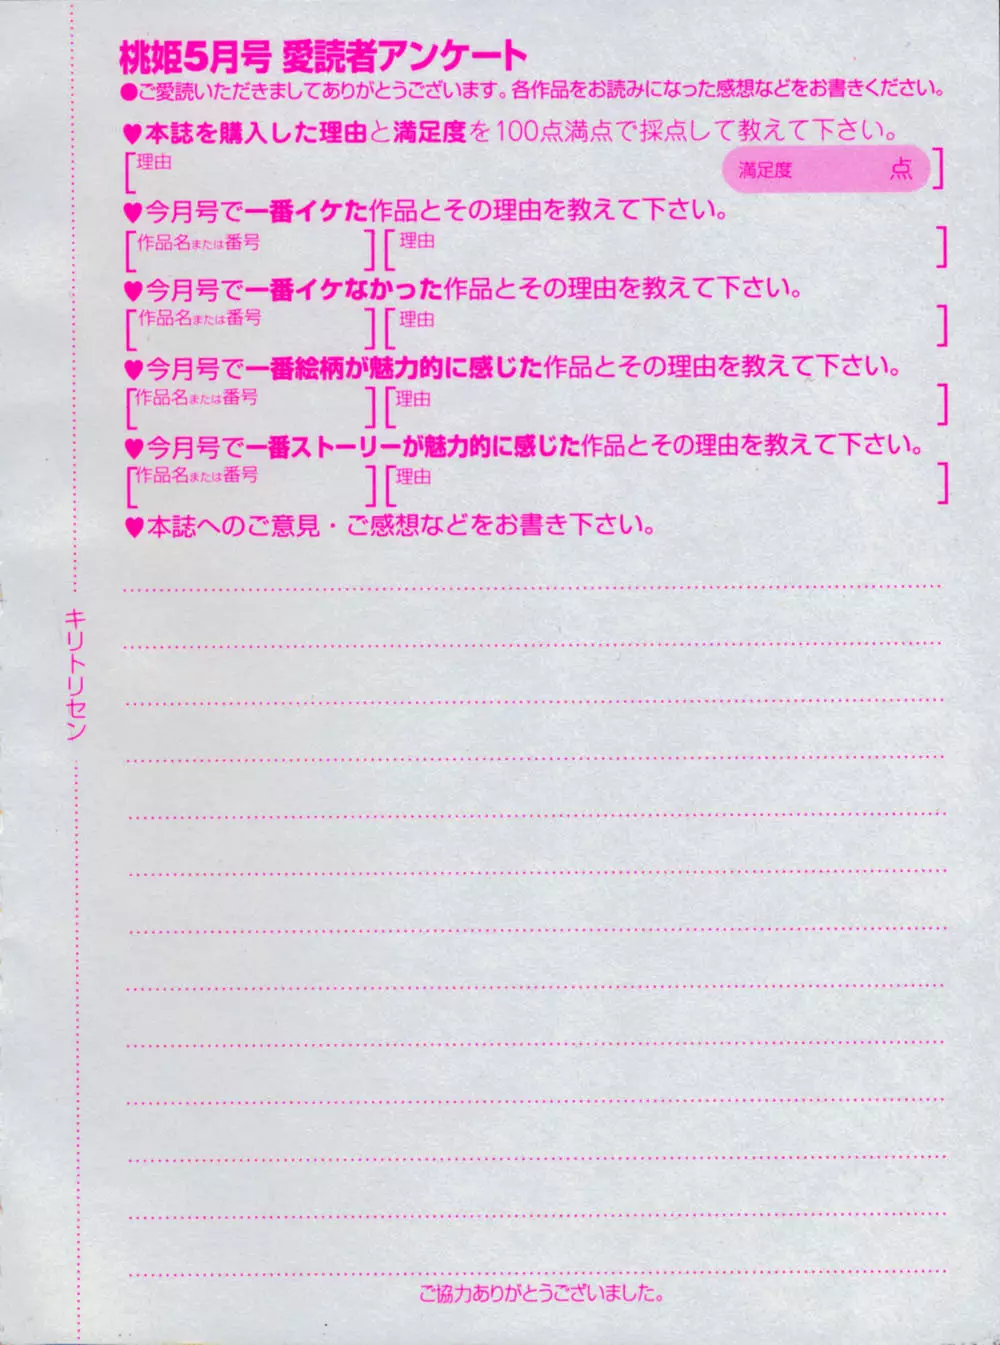 桃姫5月号 愛読者アンケート
●ご愛読いただきましてありがとうございます。各作品をお読みになった感想などをお書きください。
♥本誌を購入した理由と満足度を100点満点で採点して教えて下さい。
理由 満足度 点
♥今月号で一番イケた作品とその理由を教えて下さい。
作品名または番号 理由
♥今月号で一番イケなかった作品とその理由を教えて下さい。
作品名または番号 理由
♥今月号で一番絵柄が魅力的に感じた作品とその理由を教えて下さい。
作品名または番号 理由
♥今月号で一番ストーリーが魅力的に感じた作品とその理由を教えて下さい。
作品名または番号 理由
♥本誌へのご意見・ご感想などをお書き下さい。
キリトリセン
ご協力ありがとうございました。